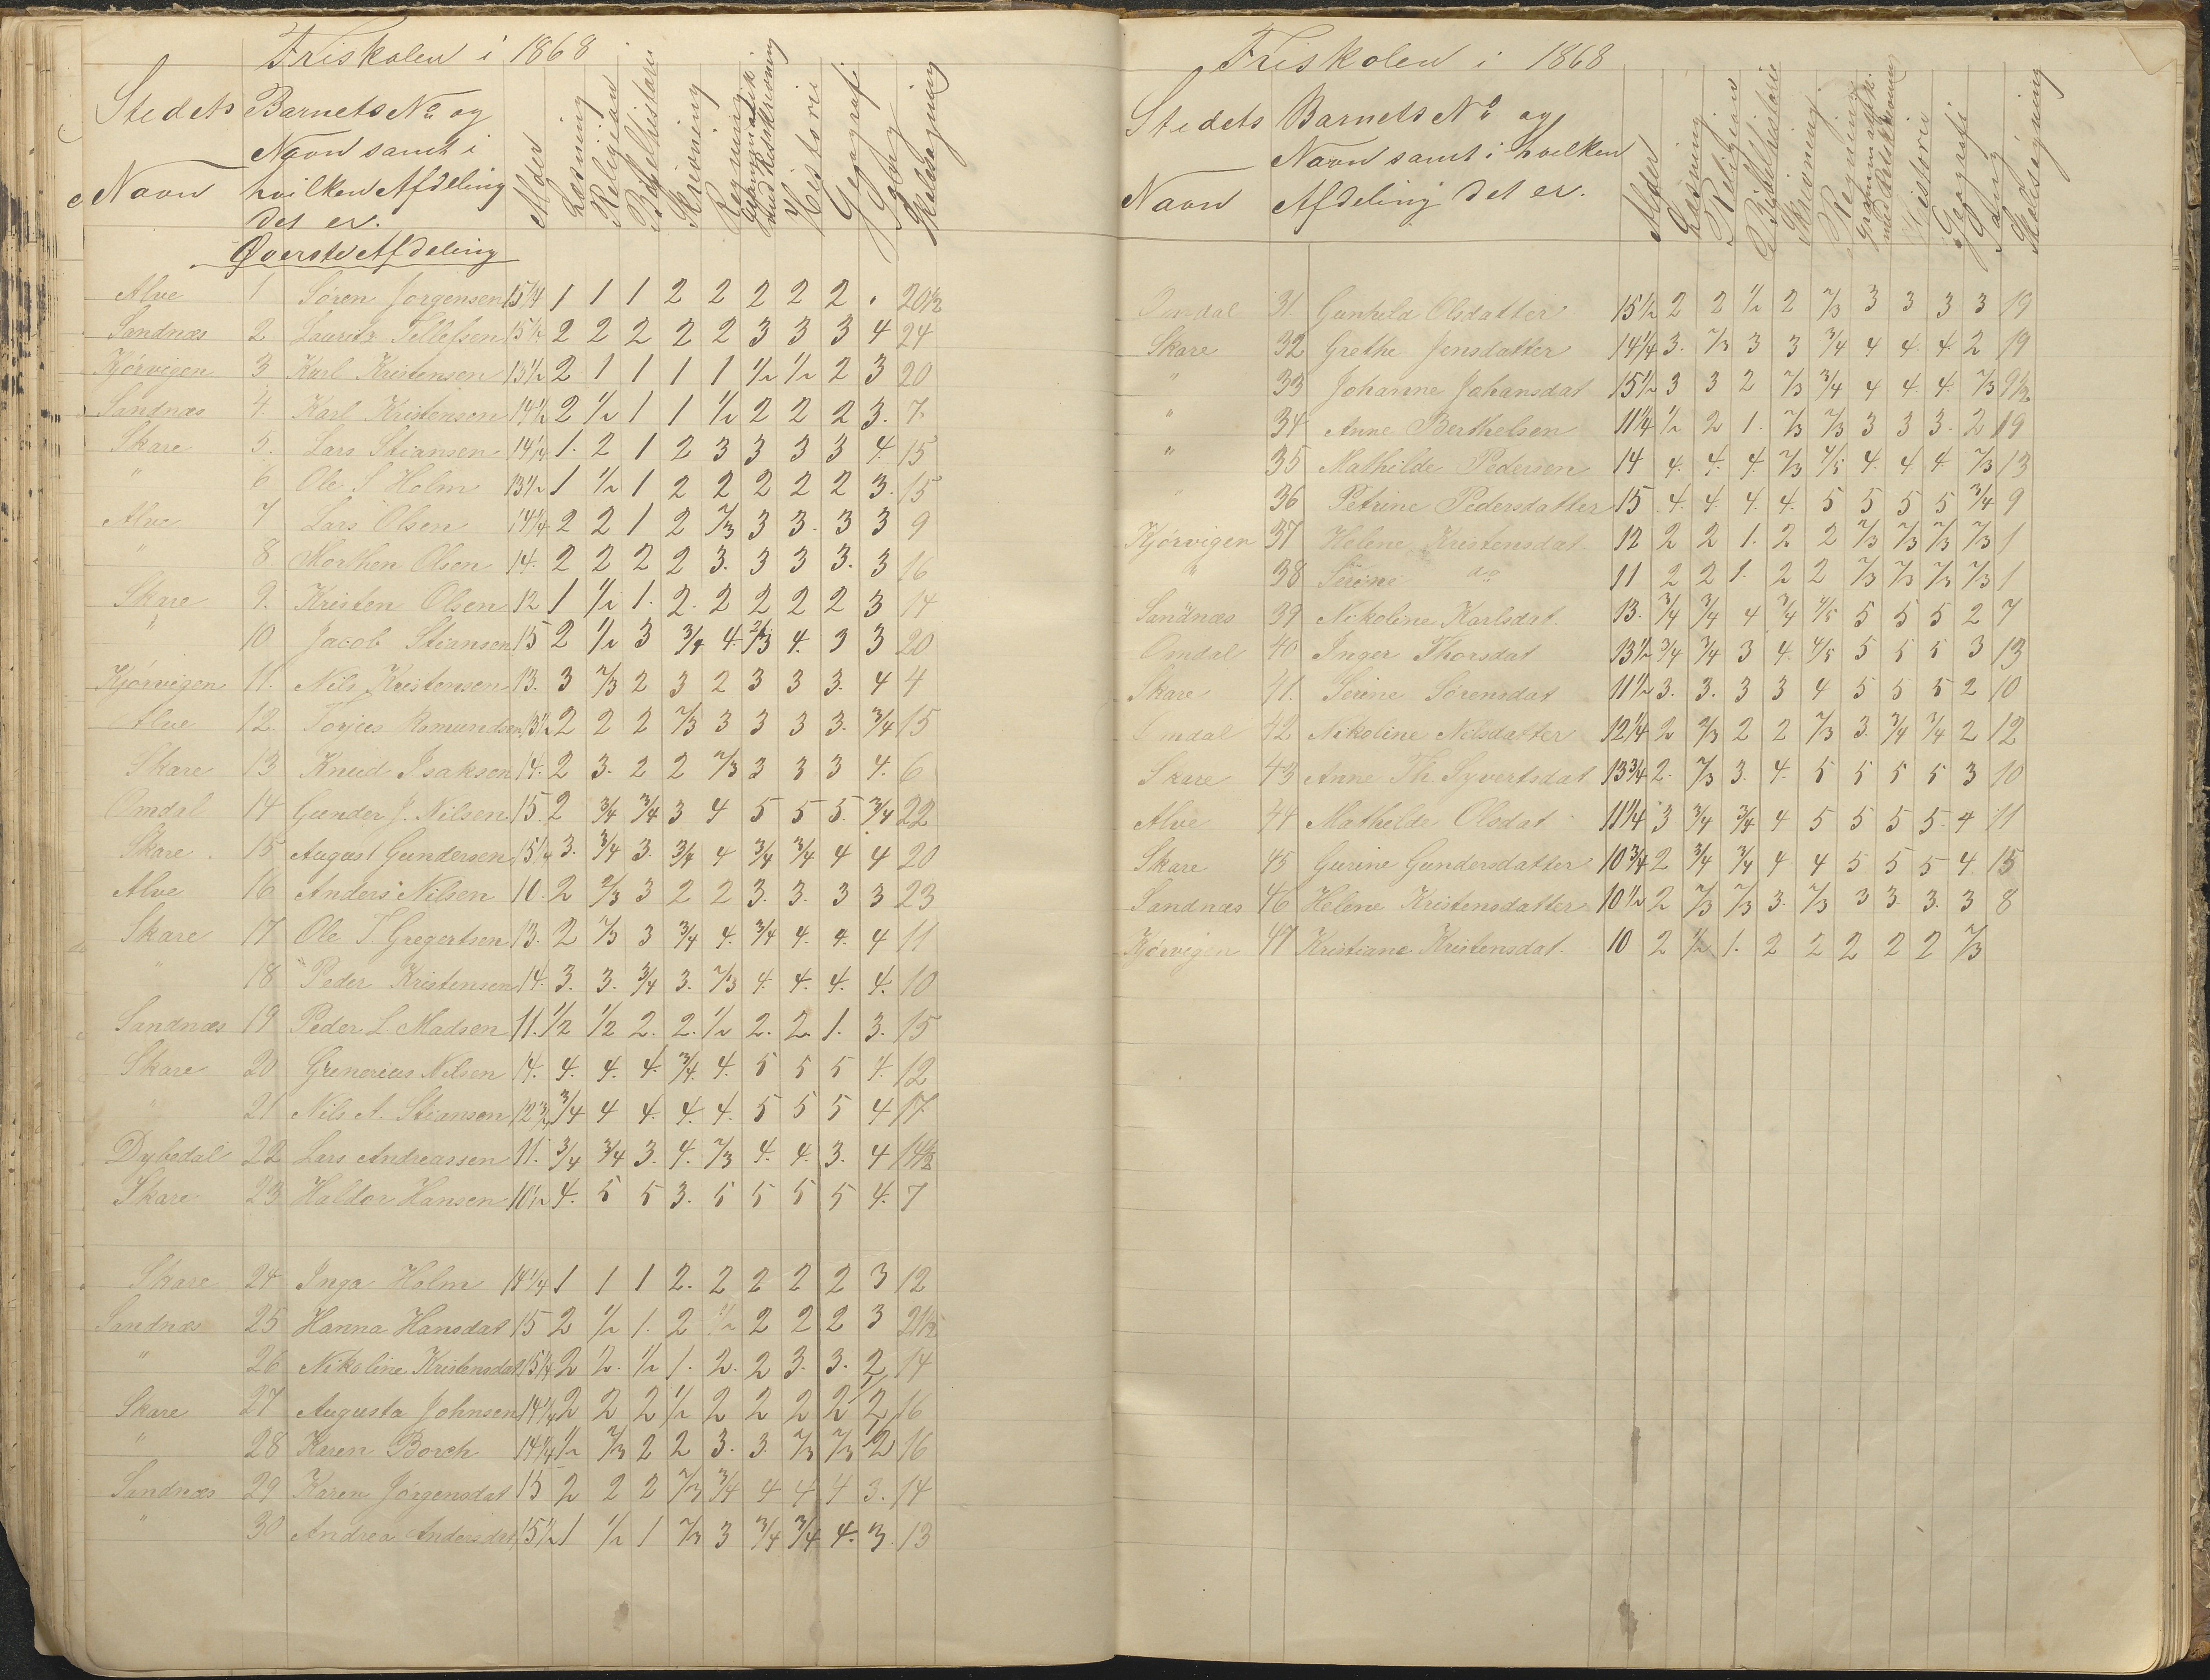 Friskolen i 1868
Stedets Navn Barnets No og Navn samt i hvilken Afdeling det er. Alder Læsning Religion Bibelhistorie Skrivning Regning Grammatik med Retskrivning Historie Geografi Sang Skolesøgning
Øverste Afdeling
Alve 1 Søren Jørgensen 15 3/4 1 1 1 2 2 2 2 2 . 20 1/2
Sandnæs 2 Lauritz Tellefsen 15 1/2 2 2 2 2 2 3 3 3 4 24
Kjørvigen 3 Karl Kristensen 13 1/2 2 1 1 1 1 1/2 1/2 2 3 20
Sandnæs 4. Karl Kristensen 14 1/2 2 1/2 1 1 1/2 2 2 2 3. 7
Skare 5. Lars Stiansen 14 1/4 1. 2 1 2 3 3 3 3 4. 15
" 6 Ole S Holm 13 1/2 1 1/2 1 2 2 2 2 2 3. 15
Alve 7 Lars Olsen 14 1/4 2 2 1 2 2/3 3 3. 3 3 9
" 8 Morthen Olsen 14. 2 2 2 2 3. 3 3 3. 3 16
Skare 9. Kristen Olsen 12 1 1/2 1. 2. 2 2 2 2 3 14
" 10 Jacob Stiansen 15 2 1/2 3 3/4 4. 2/3 4. 3 3 20
Kjørvigen 11. Nils Kristensen 13. 3 2/3 2 3 2 3 3 3. 4 4
Alve 12. Torjus Asmundsen 13 1/2 2 2 2 2/3 3 3 3 3. 3/4 15
Skare 13 Knud Isaksen 14. 2 3. 2 2 2/3 3 3 3 4. 6
Omdal 14 Gunder J. Nilsen 15. 2 3/4 3/4 3 4 5 5 5. 3/4 22
Skare. 15 August Gundersen 15 1/4 3. 3/4 3. 3/4 4 3/4 3/4 4 4 20
Alve 16 Anders Nilsen 10. 2 2/3 3 2 2 3. 3. 3 3 23
Skare 17 Ole T Gregertsen 13. 2 2/3 3 3/4 4. 3/4 4. 4. 4 11
" 18 Peder Kristensen 14. 3. 3. 3/4 3. 2/3 4. 4. 4. 4. 10
Sandnæs 19 Peder L Madsen 11. 1/2 1/2 2. 2. 1/2 2. 2. 1. 3. 15
Skare 20 Grunerius Nilsen 14. 4. 4. 4. 3/4. 4. 5 5 5 4. 12
" 21 Nils A. Stiansen 12 3/4 3/4 4 4. 4. 4. 5 5 5 4 17
Dybedal 22 Lars Andreassen 11. 3/4 3/4 3. 4. 2/3 4. 4. 3. 4 14 1/2
Skare 23 Haldor Hansen 10 1/2 4. 5 5 3. 5 5 5 5 4. 7
Skare 24 Inga Holm 14 1/4 1 1 1 2. 2 2 2 2 3 12
Sandnæs 25 Hanna Hansdat 15 2 1/2 1. 2 1/2 2 2 2 3 21 1/2
" 26 Nikoline Kristensdat 15 1/4 2 2. 1/2 1. 2. 2 3. 3. 2 14
Skare 27 Augusta Johnsen 14 1/4 2 2 2 1/2 2 2 2 2 1/2 16
" 28 Karen Borch 14 1/4 1/2 2/3 2 2 3. 3. 2/3 2/3 1/2 16
Sandnæs 29 Karen Jørgensdat 15 2 2 2 2/3 3/4 4 4 4 3. 14
" 30 Andrea Andersdat 15 1/2 1 1/2 1 2/3 3 3/4 3/4 4. 3. 13
Friskolen i 1868
Stedets Navn Barnets No og Navn samt i hvilken Afdeling det er. Alder Læsning Religion Bibelhistorie Skrivning Regning Grammatik med Retskrivning Historie Geografi Sang Skolesøgning
Omdal 31. Gunhild Olsdatter 15 1/2 2 2 1/2 2 2/3 3 3 3 3 19
Skare 32 Grethe Jensdatter 14 1/4 3. 2/3 3 3 3/4 4 4. 4. 2 19
" 33 Johanne Johansdat 15 1/2 3 3 2 2/3 3/4 4 4. 4. 2/3 9 1/2
" 34 Anne Berthelsen 11 1/4 1/2 2 1. 2/3 2/3 3 3 3. 2 19
" 35 Mathilde Pedersen 14 4. 4. 4. 2/3 4/5 4. 4. 4. 2/3 13
" 36 Petrine Pedersdatter 15 4. 4. 4. 4. 5 5 5 5 3/4 9
Kjørvigen 37 Helene Kristensdat 12 2 2 1. 2 2 2/3 2/3 2/3 2/3 1
" 38 Sirine do 11 2 2 1. 2 2 2/3 2/3 2/3 2/3 1
Sandnæs 39 Nikoline Karlsdat. 13. 3/4 3/4 4 3/4 4/5 5 5 5 2 7
Omdal 40 Inger Thorsdat 13 1/2 3/4 3/4 3 4. 4/5 5 5 5 3 13
Skare 41. Serine Sørensdat 11 1/2 3. 3. 3 3 4 5 5 5 2 10
Omdal 42 Nikoline Nilsdatter 12 1/4 2 2/3 2 2 2/3 3. 3/4 3/4 2 12
Skare 43 Anne Th. Syvertsdat 13 3/4 2. 2/3 3. 4. 5 5 5 5 3 10
Alve 44 Mathilde Olsdat 11 1/4 3 3/4 3/4 4 5 5 5 5. 4 11
Skare 45 Gurine Gundersdatter 10 3/4 2 3/4 3/4 4 4 5 5 5 4. 15
Sandnæs 46 Helene Kristensdatter 10 1/2 2 2/3 2/3 3. 2/3 3 3. 3. 3 8
Kjørvigen 47 Kristiane Kristensdat. 10 2 1/2 1. 2 2 2 2 2 2/3